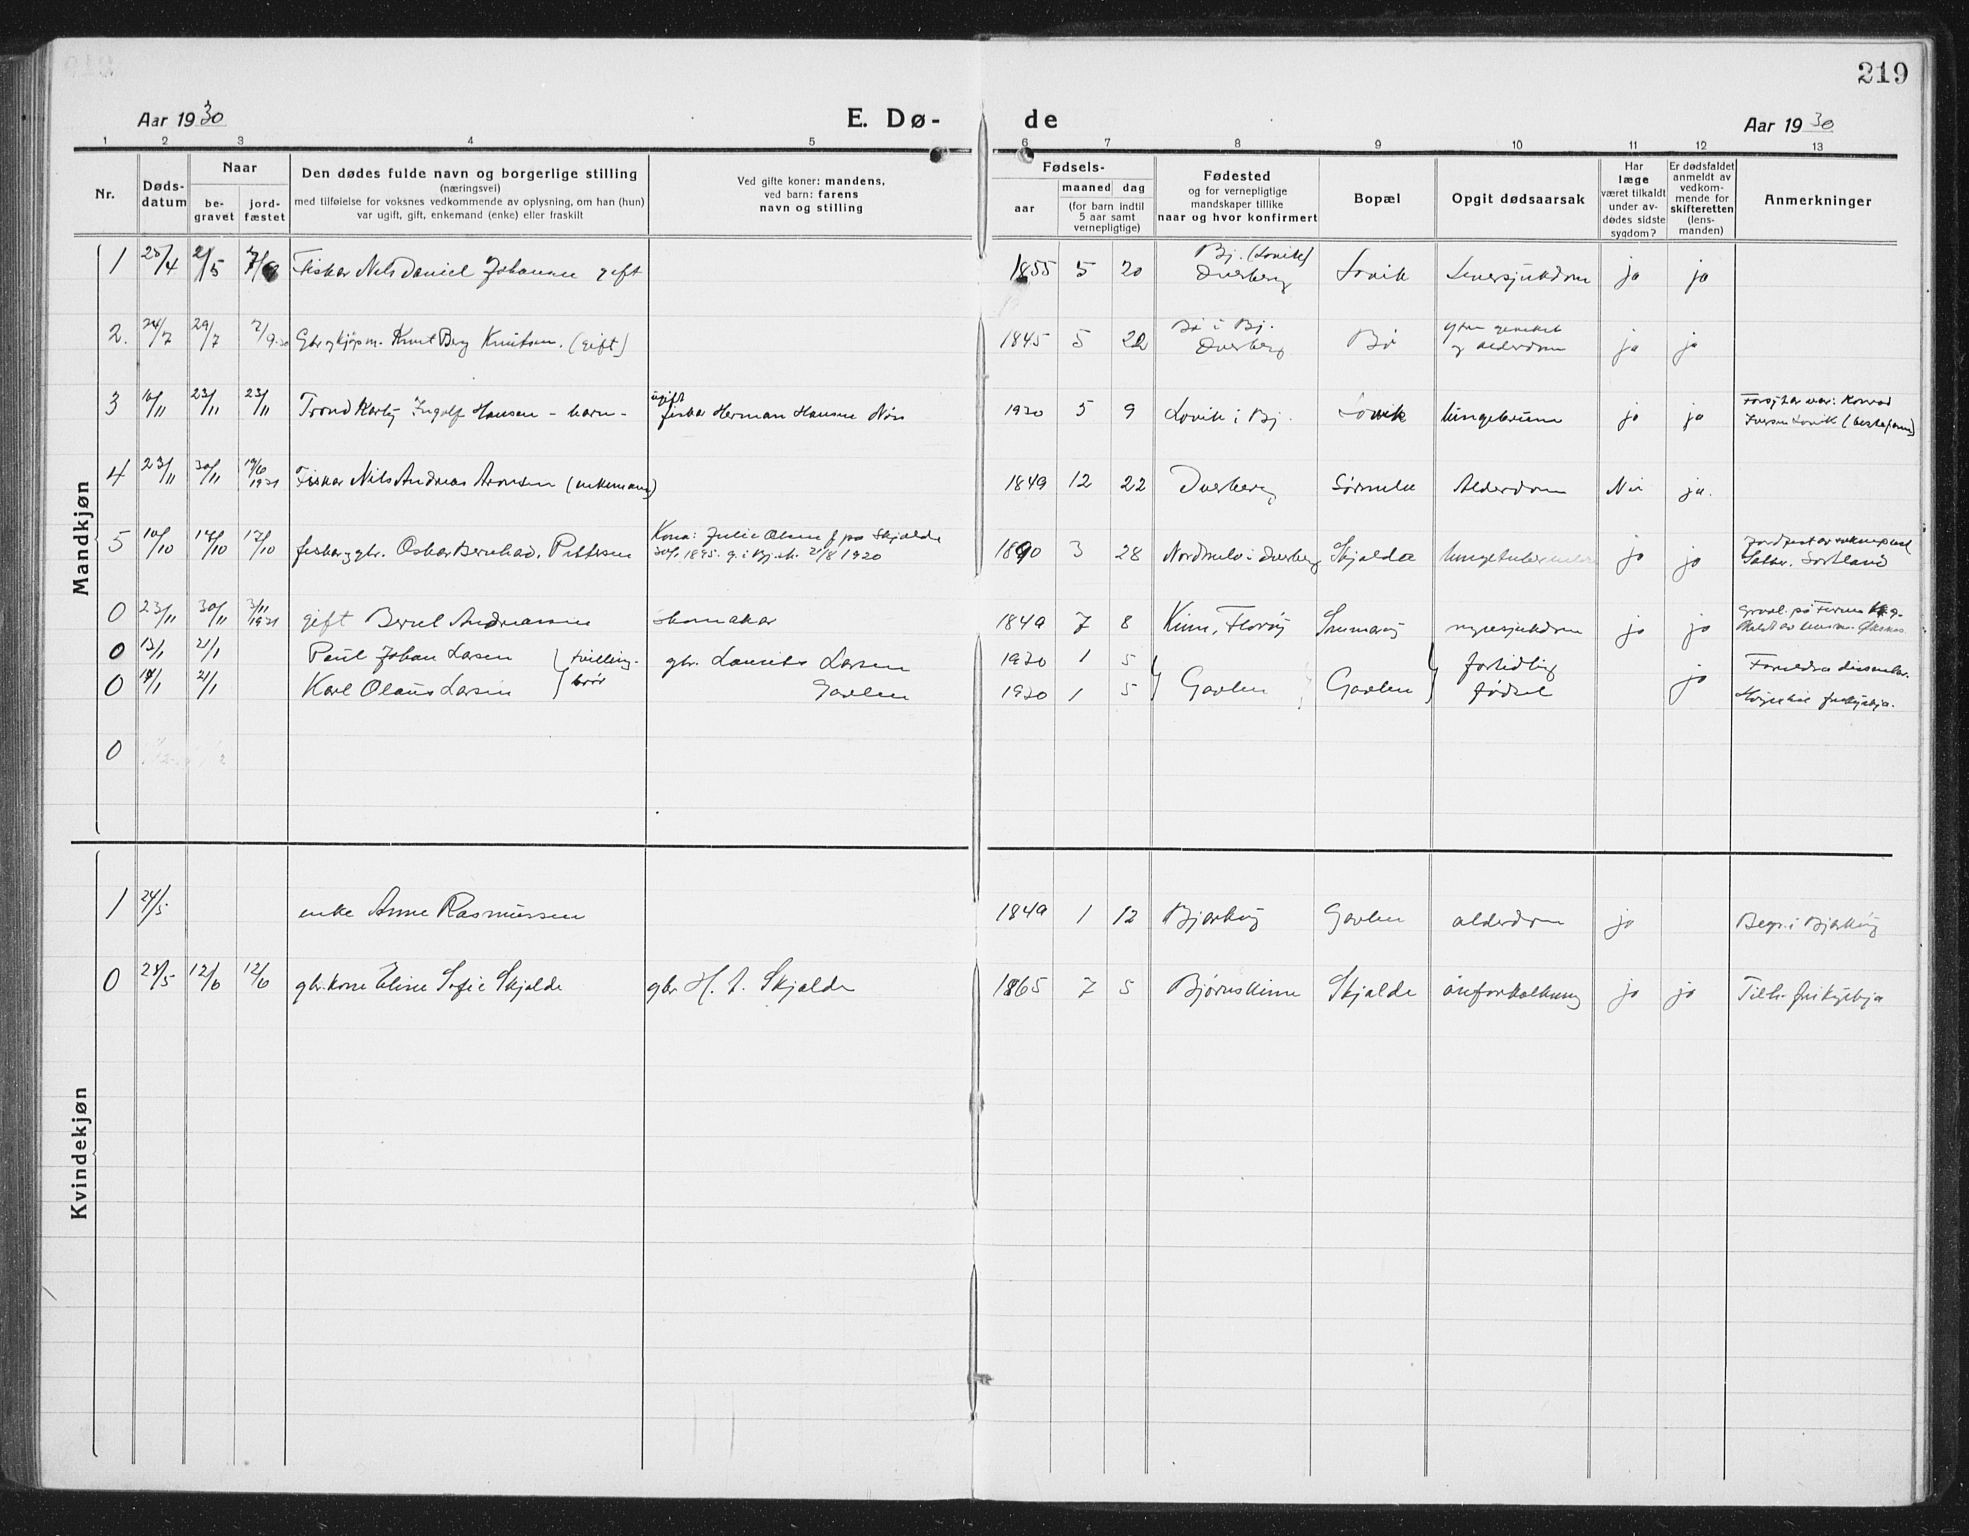 219
Aar 1930 E. Dø- de Aar 1930
1 2 3 4 5 6 7 8 9 10 11 12 13
Nr.
Døds-
datum
Naar
be-
gravet
jord-
fæstet
Den dødes fulde navn og borgerlige stilling
(næringsvei)
med tilføielse for voksnes vedkommende av oplysning, om han (hun)
var ugift, gift, enkemand (enke) eller fraskilt
Ved gifte koner: mandens,
ved barn: farens
navn og stilling
Fødsels-
aar
maaned dag
(for barn indtil
5 aar samt
vernepligtige)
Fødested
og for vernepligtige
mandskaper tillike
naar og hvor konfirmert
Bopæl
Opgit dødsaarsak
Har
læge
været tilkaldt
under av-
dødes sidste
sygdom?
Er dødsfaldet
anmeldt av
vedkom-
mende for
skifteretten
(lens-
manden)
Anmerkninger
Mandkjøn
1 25/4 2/5 Fisker Nils Daniel Johansen gift 1855 5 20 Bj. (Lovik) Dverberg Lovik Leversjukdom ja ja
2. 24/7 29/7 7/9-30 Gbr og kjøpm. Knut Berg Knutsen. (gift) 1845 5 22 Bø i Bj. Dverberg Bø og alderdom ja ja
3 16/11 23/11 23/11 Trond Karby Ingolf Hansen - barn - ugift fisker Herman Hansen Nøss 1930 5 9 Lovik i Bj. Lovik lungebrann ja ja Forsytar var: Konrad Iversen Lovik (bestefaren)
4 23/11 30/11 19/6 1931 Fisker Nils Andreas Aronsen (enkemann) 1849 12 22 Dverberg Sørmela Alderdom Nei ja.
5 10/10 17/10 17/10 fisker og gbr. Oskar Bernhard Pettersen Kona: Julie Olsen f. på Skjolde 1895. g. i Bj. k. 21/8 1920 1890 3 28 Nordmela i Dverberg Skjolde lungetuberkulose ja ja Sortland
0 23/11 30/11 3/11 1931 gift Berul Andreassen skomakar 1849 7 8 Kinn, Florøy nyresjukdom ja ja
0 13/1 21/1 Paul Johan Larsen } tvilling- gbr. Laurits Larsen 1930 1 5 fortidlig
0 14/1 21/1 Karl Olaus Larsen } brør Gavlen 1930 1 5 Gavlen Gavlen fødsel ja
0
Kvindekjøn
1 24/5 enke Anne Rasmussen 1849 1 12 Bjarkøy Gavlen alderdom ja Begr. i Bjarkøy
0 28/5 12/6 12/6 gbr.kone Eline Sofie Skjolde gbr H. J. Skjolde 1865 7 5 Bjørnskinn Skjolde åreforkalkning ja ja Tilh. frikyrkja